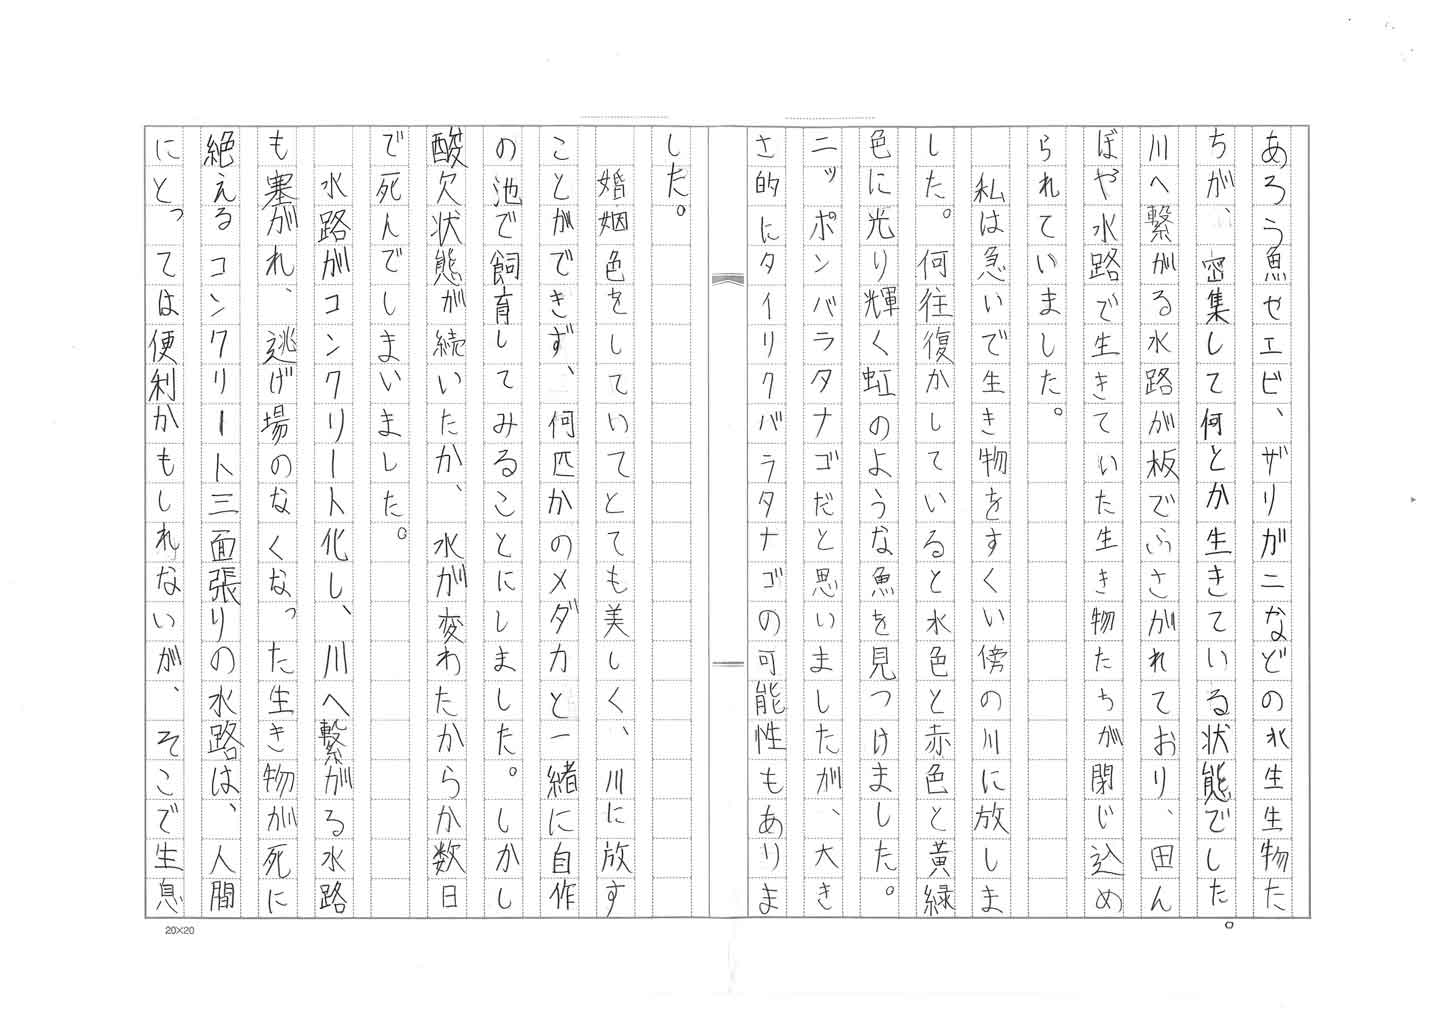 あろう魚やエビ、ザリガニなどの水生生物た
ちが、密集して何とか生きている状態でした。
川へ繋がる水路が板でふさがれており、田ん
ぼや水路で生きていた生き物たちが閉じ込め
られていました。
私は急いで生き物をすくい傍の川に放しま
した。何往復かしていると水色と赤色と黄緑
色に光り輝く虹のような魚を見つけました。
ニッポンバラタナゴだと思いましたが、大き
さ的にタイリクバラタナゴの可能性もありま
した。
婚姻色をしていてとても美しく、川に放す
ことができず、何匹かのメダカと一緒に自作
の池で飼育してみることにしました。しかし
酸欠状態が続いたか、水が変わたからか数日
で死んでしまいました。
水路がコンクリート化し、川へ繋がる水路
も塞がれ、逃げ場のなくなった生き物が死に
絶えるコンクリート三面張りの水路は、人間
にとっては便利かもしれないが、そこで生息
20×20